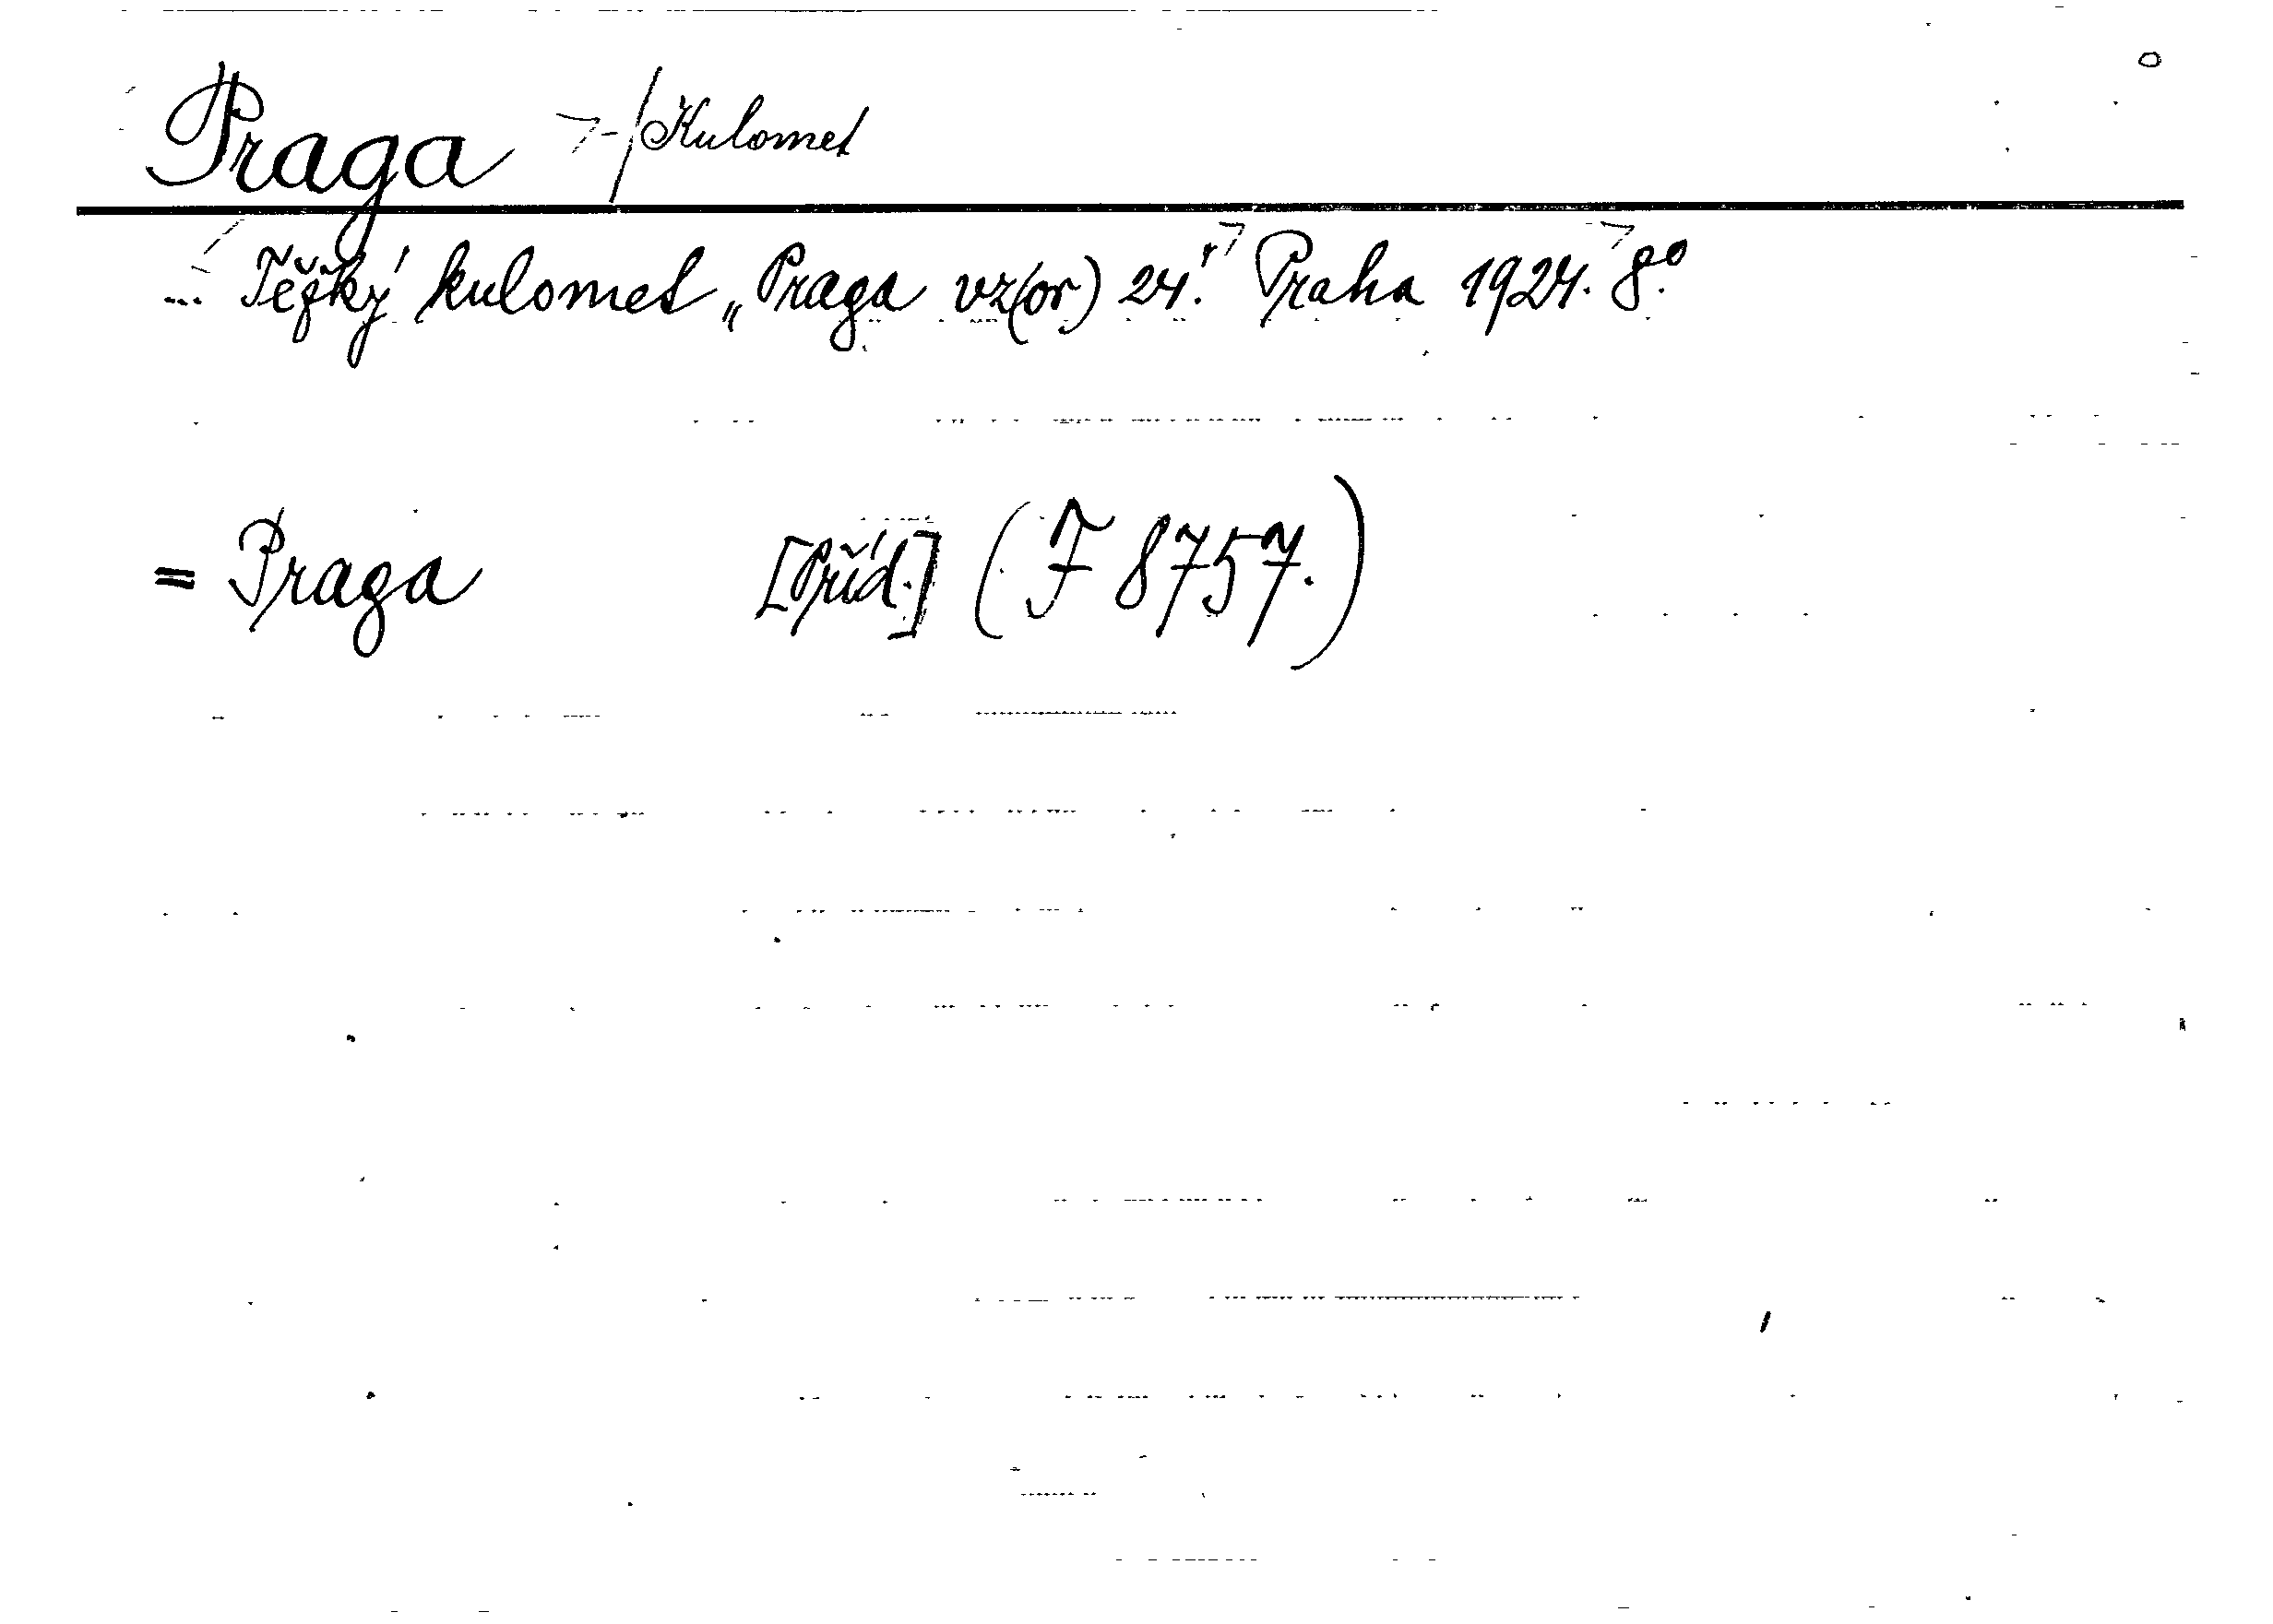 Praga / Kulomet
... Těžký kulomet „Praga vz(or) 24." Praha 1924. 8.º
= Praga [Příd.] (F 8757.)